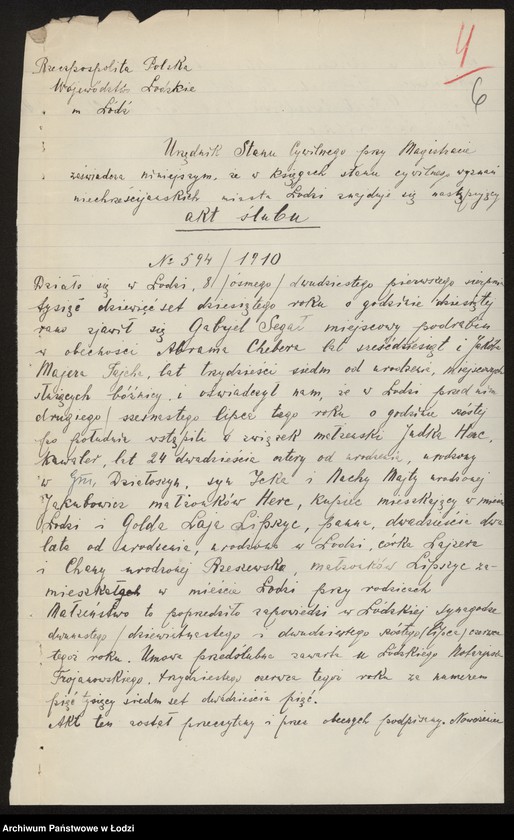 4
6
Rzeczpospolita Polska
Województwo Łódzkie
m Łódź
Urzędnik Stanu Cywilnego przy Magistracie
zaświadcza niniejszym, że w księgach stanu cywilnego, wyznań
niechrześcijańskich miasta Łodzi znajduje się następujący
akt ślubu
No 594/1910
Działo się w Łodzi, 8/ósmego/ dwudziestego pierwszego sierpnia
tysiąc dziewięćset dziesiątego roku o godzinie dziesiątej
rano zjawił się Gabryel Segał miejscowy podrabin
w obecności Abrama Chebera lat sześćdziesiąt i Jakóba
Majera Fajcha, lat trzydzieści siedm od urodzenia, miejscowych
służących bóźnicy i oświadczył nam, że w Łodzi przed nim
drugiego/ szesnastego lipca tego roku o godzinie szóstej
po południu wstąpili w związek małżeński Judka Herc,
kawaler, lat 24 dwadzieścia cztery od urodzenia, urodzony
w gm. Działoszyn, syn Icka i Nachy Majty urodzonej
Jakubowicz małżonków Herc, kupiec mieszkający w mieście
Łodzi i Gołda Łaja Lipszyc, panna, dwadzieścia dwa
lata od urodzenia, urodzona w Łodzi, córka Lajzera
i Chany urodzonej Rzeszewska, małżonków Lipszyc za-
mieszkałych w mieście Łodzi przy rodzicach
Małżeństwo to poprzedziło zapowiedzi w Łódzkiej Synagodze
dwunastego/ dziewiętnastego i dwudziestego szóstego/ lipca/ czerwca
tegoż roku. Umowa przedślubna zawarta u Łódzkiego Notaryusza
Trojanowskiego, trzydziestego czerwca tegoż roku za numerem
pięć tysięcy siedm set dwadzieścia pięć.
Akt ten został przeczytany i przez obecnych podpisany. Nowożeńcy
Archiwum Państwowe w Łodzi